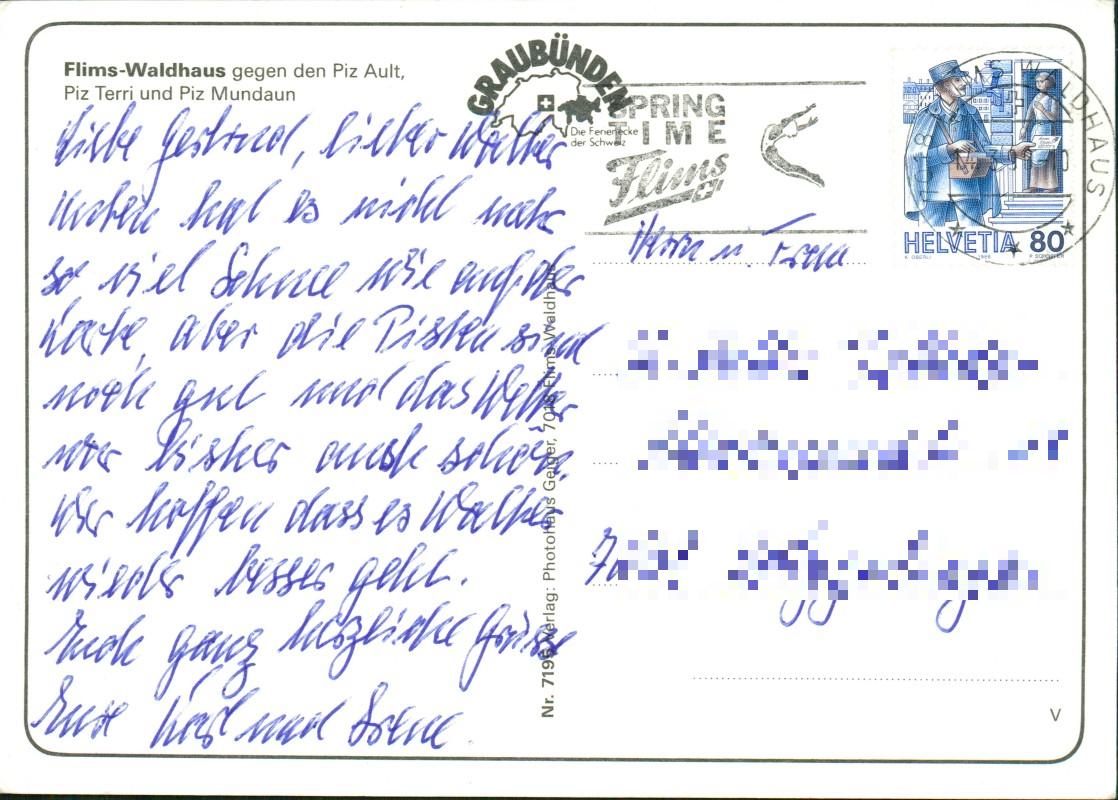 Flims-Waldhaus gegen den Piz Ault,
Piz Terri und Piz Mundaun
Liebe Gertrud, lieber Walter
hat es nicht mehr
so viel Schnee wie auf der
Karte, aber die Pisten sind
noch gut und das Wetter
war bisher auch schön.
Wir hoffen dass es Walter
wieder besser geht.
Euch ganz herzliche Grüsse
Eure Karl und Irene.
Nr. 7196 Verlag: Photohaus Geiger, 7018 Flims-Waldhaus
GRAUBÜNDEN
Die Ferienecke
der Schweiz
SPRING
TIME
Flims
WALDHAUS
HELVETIA 80
Herrn u. Frau
V